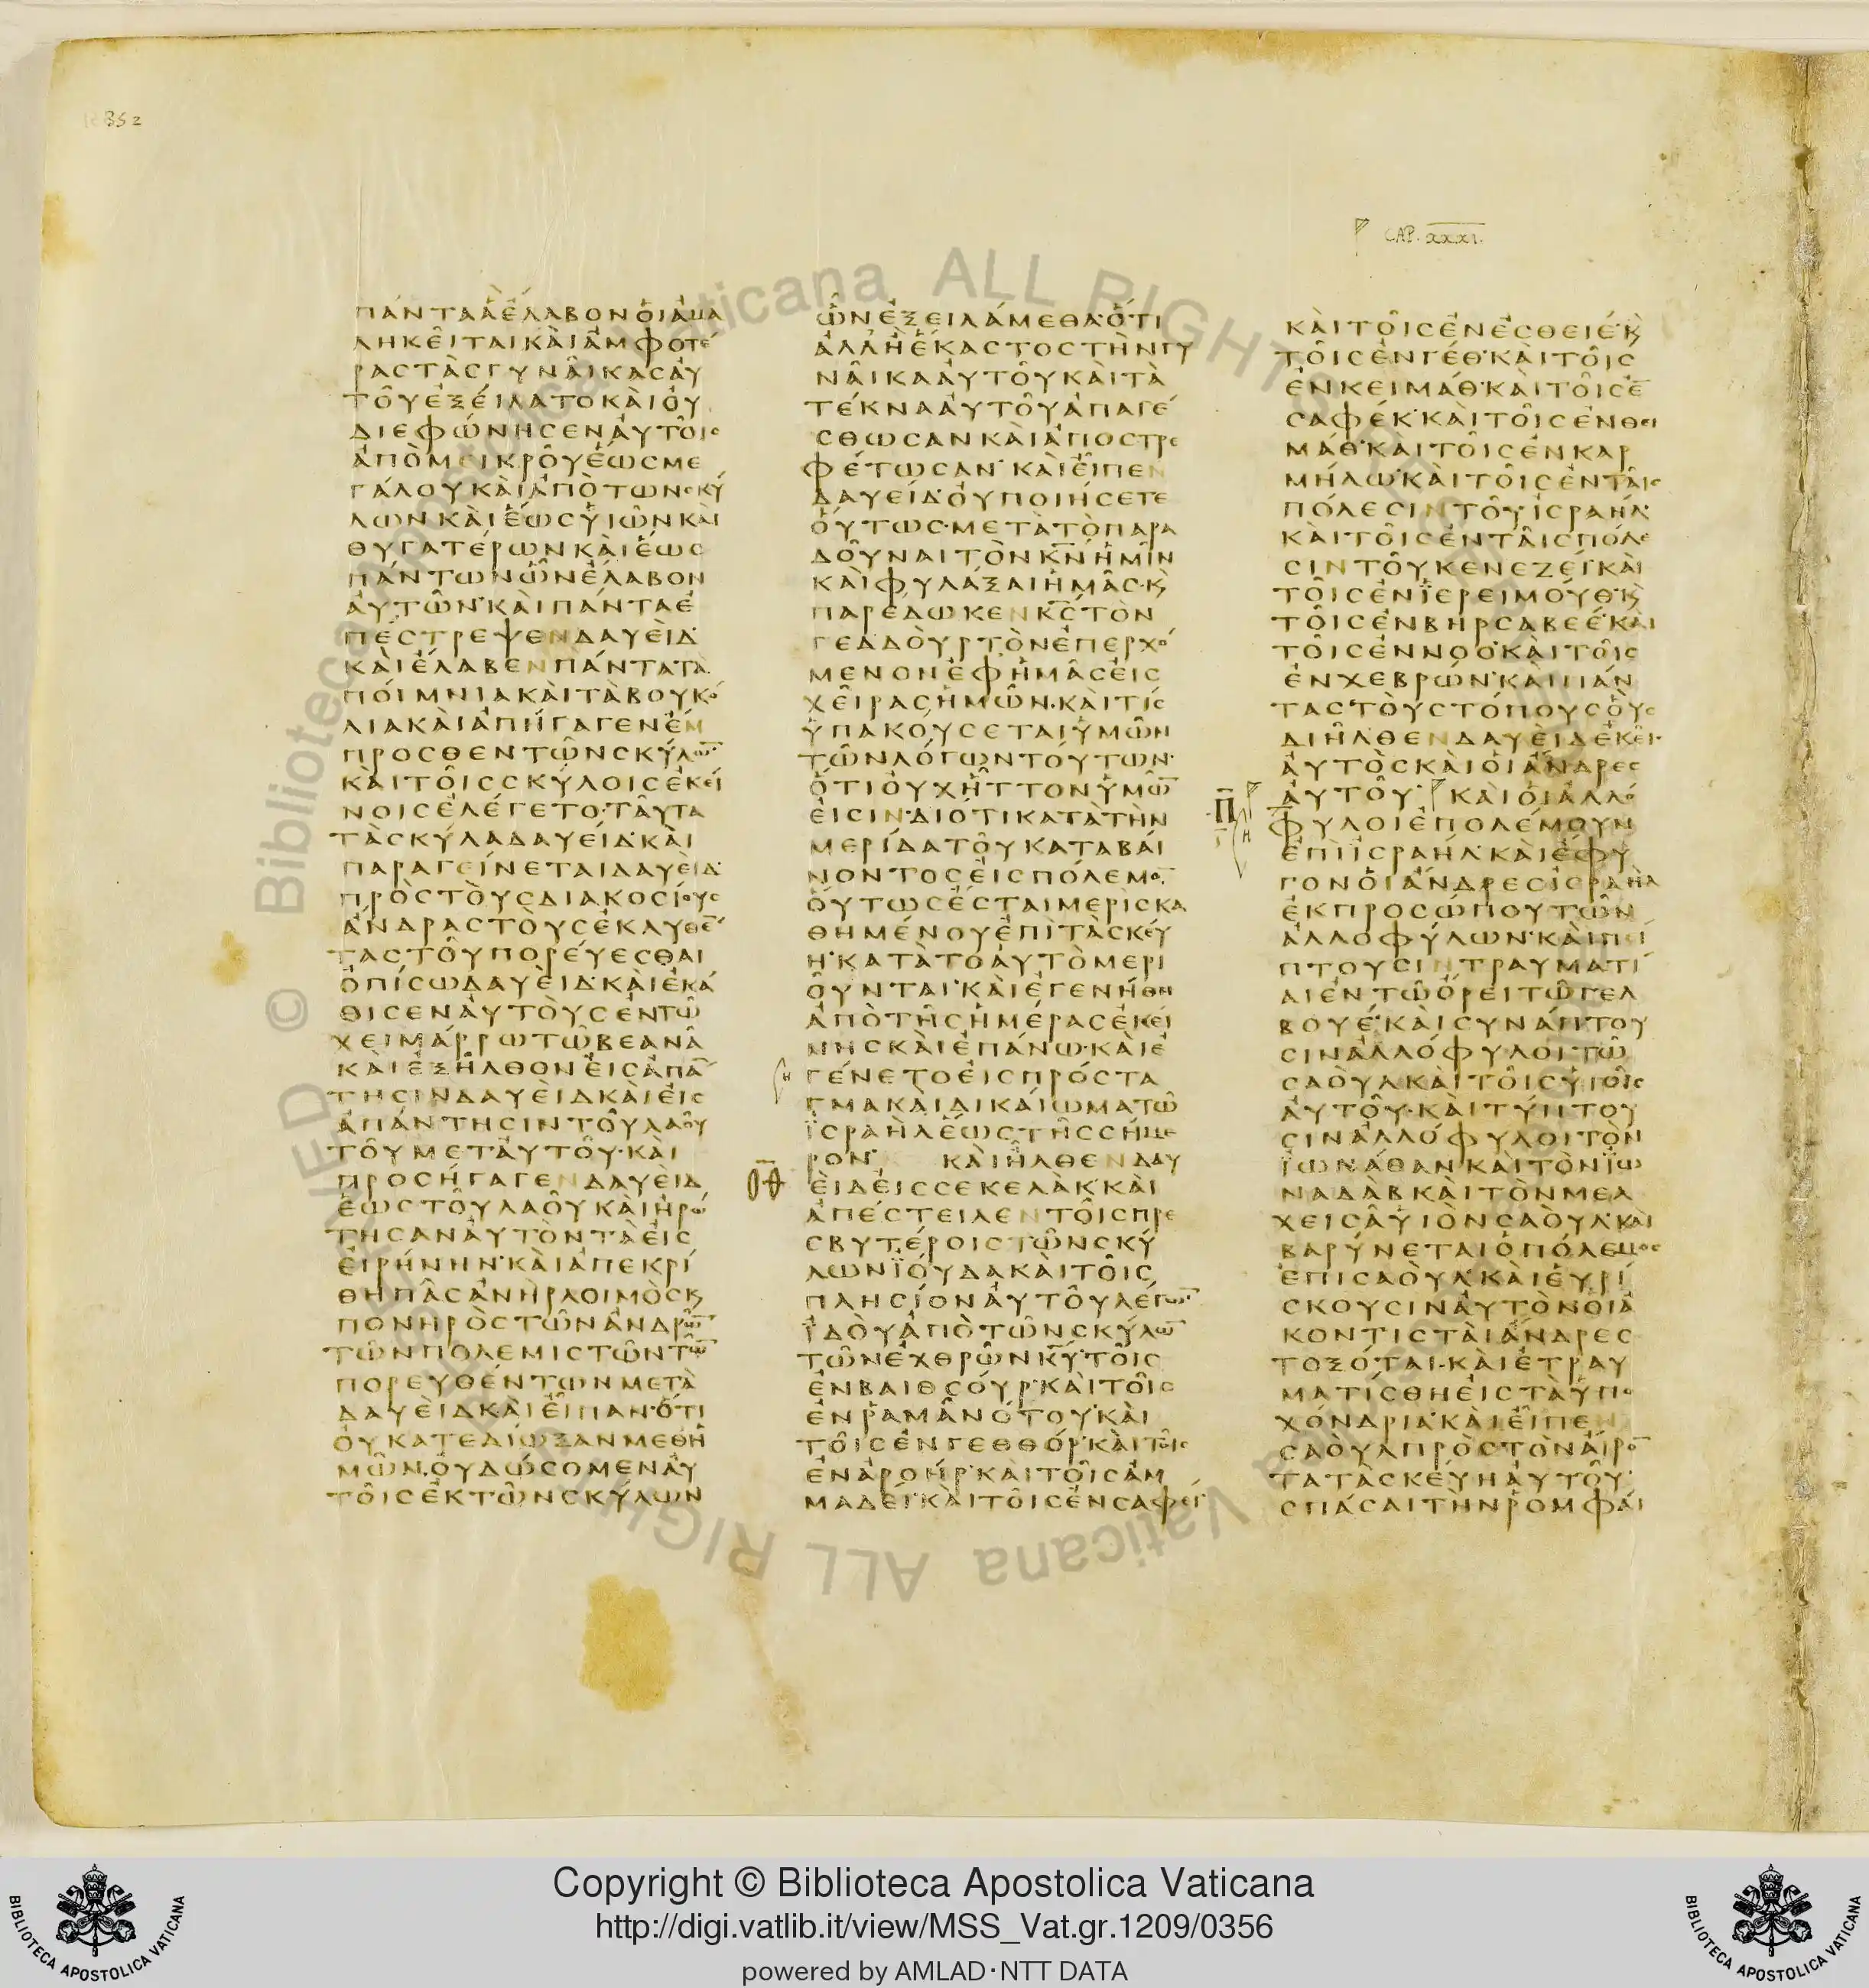 352
CAP. XXXI.
ΠΆΝΤΑ ἊἜΛΑΒΟΝ ὉΙἈΜΑ
ΛΗΚΕ͂ΙΤΑΙΚΑῚἈΜΦΟΤΈ
ΡΑΣΤᾺΣΓΥΝΑ͂ΙΚΑΣἈΥ
ΤΟ͂ΥἘΞΈΙΛΑΤΟΚΑῚΟΥ
ΔΙΕΦΏΝΗΣΕΝἈΥΤΟ͂ΙΣ
ἈΠῸΜΕΙΚΡΟ͂ΥἝΩΣΜΕ
ΓΆΛΟΥΚΑῚἈΠῸΤΩΝΣΚΎ
ΛΩΝΚΑῚἝΩΣΥἹΩ͂ΝΚΑῚ
ΘΥΓΑΤΈΡΩΝΚΑῚἝΩΣ
ΠΆΝΤΩΝΩ͂ΝἜΛΑΒΟΝ
ἈΥΤΩ͂Ν·ΚΑῚΠΆΝΤΑἘ
ΠΈΣΤΡΕΨΕΝΔΑΥΕῚΔ·
ΚΑῚἜΛΑΒΕΝΠΆΝΤΑΤΑ
ΠΌΙΜΝΙΑΚΑῚΤᾺΒΟΥΚΌ
ΛΙΑΚΑῚἈΠΉΓΑΓΕΝἜΜ
ΠΡΟΣΘΕΝΤΩ͂ΝΣΚΎΛΩ̅·
ΚΑῚΤΟ͂ΙΣΣΚΎΛΟΙΣἘΚΕΊ
ΝΟΙΣἘΛΈΓΕΤΟ·ΤΑ͂ΥΤΑ
ΤᾺΣΚΎΛΑΔΑΥΕῚΔ·ΚΑῚ
ΠΑΡΑΓΕΊΝΕΤΑΙΔΑΥΕῚΔ
ΠΡῸΣΤΟῪΣΔΙΑΚΟΣΊΟΥΣ
ἌΝΔΡΑΣΤΟῪΣἘΚΛΥΘΈ̅
ΤΑΣΤΟ͂ΥΠΟΡΕΎΕΣΘΑΙ
ὈΠΊΣΩΔΑΥΕῚΔ·ΚΑῚἘΚΆ
ΘΙΣΕΝἈΥΤΟῪΣἘΝΤΩ͂
ΧΕΙΜΆΡΡΩΤΩ͂ΒΕΑΝᾺ
ΚΑῚἘΞΗ͂ΛΘΟΝἘΙΣἈΠΆ̅
ΤΗΣΙΝΔΑΥΕῚΔΚΑῚἘΙΣ
ἈΠΆΝΤΗΣΙΝΤΟ͂ΥΛΑΟ͂Υ
ΤΟ͂ΥΜΕΤἈΥΤΟ͂Υ·ΚΑῚ
ΠΡΟΣΉΓΑΓΕΝΔΑΥΕῚΔ
ἝΩΣΤΟ͂ΥΛΑΟ͂ΥΚΑῚἨΡΏ
ΤΗΣΑΝἈΥΤῸΝΤᾺἘΙΣ
ἘΙΡΉΝΗΝ·ΚΑῚἈΠΕΚΡΊ
ΘΗΠΑ͂ΣἈΝῊΡΛΟΙΜῸΣΚ̀
ΠΟΝΗΡῸΣΤΩ͂ΝἈΝΔΡΩ͂̅
ΤΩ͂ΝΠΟΛΕΜΙΣΤΩ͂ΝΤΩ͂̅
ΠΟΡΕΥΘΈΝΤΩΝΜΕΤᾺ
ΔΑΥΕῚΔΚΑῚΕἾΠΑΝ·ὍΤΙ
ὈΥΚΑΤΕΔΊΩΞΑΝΜΕΘἩ
ΜΩ͂Ν·ὈΥΔΏΣΟΜΕΝἈΥ
ΤΟ͂ΙΣἘΚΤΩ͂ΝΣΚΎΛΩΝ
Ω͂ΝἘΞΕΙΛΆΜΕΘΑ·ὍΤΙ
ἈΛΛἪἝΚΑΣΤΟΣΤῊΝΓΥ
ΝΑ͂ΙΚΑἈΥΤΟ͂ΥΚΑῚΤᾺ
ΤΈΚΝΑἈΥΤΟ͂ΥἈΠΑΓΈ
ΣΘΩΣΑΝΚΑῚἈΠΟΣΤΡΕ
ΦΈΤΩΣΑΝ·ΚΑῚΕἾΠΕΝ
ΔΑΥΕῚΔ·ὈΥΠΟΙΉΣΕΤΕ
ὍΥΤΩΣ·ΜΕΤᾺΤῸΠΑΡΑ
ΔΟ͂ΥΝΑΙΤῸΝΚ̅Ν̅ἩΜΙ͂Ν
ΚΑῚΦΥΛΆΞΑΙἩΜΑ͂Σ·Κ̀
ΠΑΡΈΔΩΚΕΝΚ̅Σ̅ΤῸΝ
ΓΕΔΔΟῪΡΤῸΝἘΠΕΡΧΌ
ΜΕΝΟΝἘΦἩΜΑ͂ΣἘΙΣ
ΧΕ͂ΙΡΑΣἩΜΩ͂Ν·ΚΑῚΤΊΣ
ὙΠΑΚΟΎΣΕΤΑΙὙΜΩ͂Ν
ΤΩ͂ΝΛΌΓΩΝΤΟΎΤΩΝ·
ὍΤΙὈΥΧΗ͂ΤΤΟΝὙΜΩ͂̅
ἘΙΣΙΝ·ΔΙΌΤΙΚΑΤᾺΤῊΝ
ΜΕΡΊΔΑΤΟ͂ΥΚΑΤΑΒΑΊ
ΝΟΝΤΟΣἘΙΣΠΌΛΕΜΟ̅·
ὍΥΤΩΣἜΣΤΑΙΜΕΡῚΣΚΑ
ΘΗΜΈΝΟΥἘΠῚΤᾺΣΚΕΎ
Η·ΚΑΤᾺΤΟἈΥΤῸΜΕΡΙ
Ο͂ΥΝΤΑΙ·ΚΑῚἘΓΕΝΉΘΗ
ἈΠῸΤΗ͂ΣἩΜΈΡΑΣἘΚΕΊ
ΝΗΣΚΑῚἘΠΆΝΩ·ΚΑῚἘ
ΓΈΝΕΤΟἘΙΣΠΡΌΣΤΑ
ΓΜΑΚΑῚΔΙΚΑΊΩΜΑΤΩ͂
ΪΣΡΑῊΛἝΩΣΤΗ͂ΣΣΉΜΕ
ΡΟΝ· ΚΑῚἮΛΘΕΝΔΑΥ
ΙΘ ΕῚΔἘΙΣΣΕΚΕΛᾺΚΚΑῚ
ἈΠΈΣΤΕΙΛΕΝΤΟ͂ΙΣΠΡΕ
ΣΒΥΤΈΡΟΙΣΤΩ͂ΝΣΚΎ
ΛΩΝΪΟΎΔΑΚΑῚΤΟ͂ΙΣ
ΠΛΗΣΊΟΝἈΥΤΟ͂ΥΛΈΓΩ̅·
ΪΔΟῪἈΠῸΤΩ͂ΝΣΚΎΛΩ̅
ΤΩ͂ΝἘΧΘΡΩ͂ΝΚ̅Υ̅·ΤΟ͂ΙΣ
ἘΝΒΑΙΘΣΟΎΡ·ΚΑῚΤΟ͂ΙΣ
ἘΝΡΑΜᾺΝΌΤΟΥ·ΚΑῚ
ΤΟ͂ΙΣἘΝΓΕΘΘΌΡ·ΚΑῚΤΟ͂ΙΣ
ἘΝἈΡΟΉΡ·ΚΑῚΤΟ͂ΙΣἈΜ
ΜΑΔΕΊ·ΚΑῚΤΟ͂ΙΣἘΝΣΑΦΕΊ·
ΚΑῚΤΟ͂ΙΣἘΝἘΣΘΕΙΈ·Κ̀
ΤΟ͂ΙΣἘΝΓΈΘ·ΚΑῚΤΟ͂ΙΣ
ἘΝΚΕΙΜΆΘ·ΚΑῚΤΟ͂ΙΣἘ̅
ΣΑΦΈΚ·ΚΑῚΤΟ͂ΙΣἘΝΘΕΙ
ΜΆΘ·ΚΑῚΤΟ͂ΙΣἘΝΚΑΡ
ΜΉΛΩ·ΚΑῚΤΟ͂ΙΣἘΝΤΑ͂ΙΣ
ΠΌΛΕΣΙΝΤΟ͂Υ·ἸΣΡΑΗΛ·
ΚΑῚΤΟ͂ΙΣἘΝΤΑ͂ΙΣΠΌΛΕ
ΣΙΝΤΟ͂ΥΚΕΝΕΖΕΊ·ΚΑῚ
ΤΟ͂ΙΣἘΝΪΕΡΕΙΜΟΎΘ·Κ̀
ΤΟ͂ΙΣἘΝΒΗΡΣΑΒΕΈ·ΚΑῚ
ΤΟ͂ΙΣἘΝΝΟΌ·ΚΑῚΤΟ͂ΙΣ
ἘΝΧΕΒΡΏΝ·ΚΑῚΠΆΝ
ΤΑΣΤΟῪΣΤΌΠΟΥΣὋΥΣ
ΔΙΗ͂ΛΘΕΝΔΑΥΕῚΔἘΚΕ͂Ι·
ἈΥΤῸΣΚΑῚὉΙἌΝΔΡΕΣ
Π ἈΥΤΟ͂Υ· ΚΑῚὉΙἈΛΛΌ
ΦΥΛΟΙἘΠΟΛΈΜΟΥΝ
ἘΠῚΪΣΡΑΉΛ·ΚΑῚἜΦΥ
ΓΟΝὉΙἌΝΔΡΕΣἸΣΡΑῊΛ
ἘΚΠΡΟΣΏΠΟΥΤΩ͂Ν
ἈΛΛΟΦΎΛΩΝ·ΚΑῚΠΕΊ
ΠΤΟΥΣΙΝΤΡΑΥΜΑΤΊ
ΑΙἘΝΤΩ͂ὌΡΕΙΤΩ͂ΓΕΛ
ΒΟΥΈ·ΚΑῚΣΥΝΆΠΤΟΥ
ΣΙΝἈΛΛΌΦΥΛΟΙΤΩ͂
ΣΑΟῪΛΚΑῚΤΟ͂ΙΣὙΙΟ͂ΙΣ
ἈΥΤΟ͂Υ·ΚΑῚΤΎΠΤΟΥ
ΣΙΝἈΛΛΌΦΥΛΟΙΤῸΝ
ΪΩΝΆΘΑΝΚΑῚΤῸΝΪΩ
ΝΑΔᾺΒΚΑῚΤῸΝΜΕΛ
ΧΕΙΣᾺὙΙῸΝΣΑΟΎΛ·ΚΑῚ
ΒΑΡΎΝΕΤΑΙὉΠΌΛΕΜΟΣ
ἘΠῚΣΑΟΎΛ·ΚΑῚἙΥΡΊ
ΣΚΟΥΣΙΝἈΥΤῸΝὉΙἈ
ΚΟΝΤΙΣΤΑῚἌΝΔΡΕΣ
ΤΟΞΌΤΑΙ·ΚΑῚἘΤΡΑΥ
ΜΑΤΊΣΘΗἘΙΣΤᾺὙΠΟ
ΧΌΝΔΡΙΑ·ΚΑῚΕἾΠΕΝ
ΣΑΟῪΛΠΡῸΣΤῸΝΑἼΡΟ̅
ΤΑΤᾺΣΚΕΎΗἈΥΤΟ͂Υ·
ΣΠΆΣΑΙΤῊΝΡΟΜΦΑΊ
Copyright © Biblioteca Apostolica Vaticana
http://digi.vatlib.it/view/MSS_Vat.gr.1209/0356
powered by AMLAD·NTT DATA
BIBLIOTECA APOSTOLICA VATICANA
BIBLIOTECA APOSTOLICA VATICANA